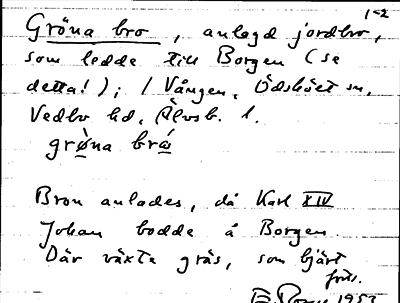 1-2
Gröna bro, anlagd jordbro,
som ledde till Borgen (se
detta!); i Vången, Ödskölt sn,
Vedbo hd, Älvsb. l.
grø̀na brá
Bron anlades, då Karl XIV
Johan bodde å Borgen.
Där växte gräs, som bjärt
1953